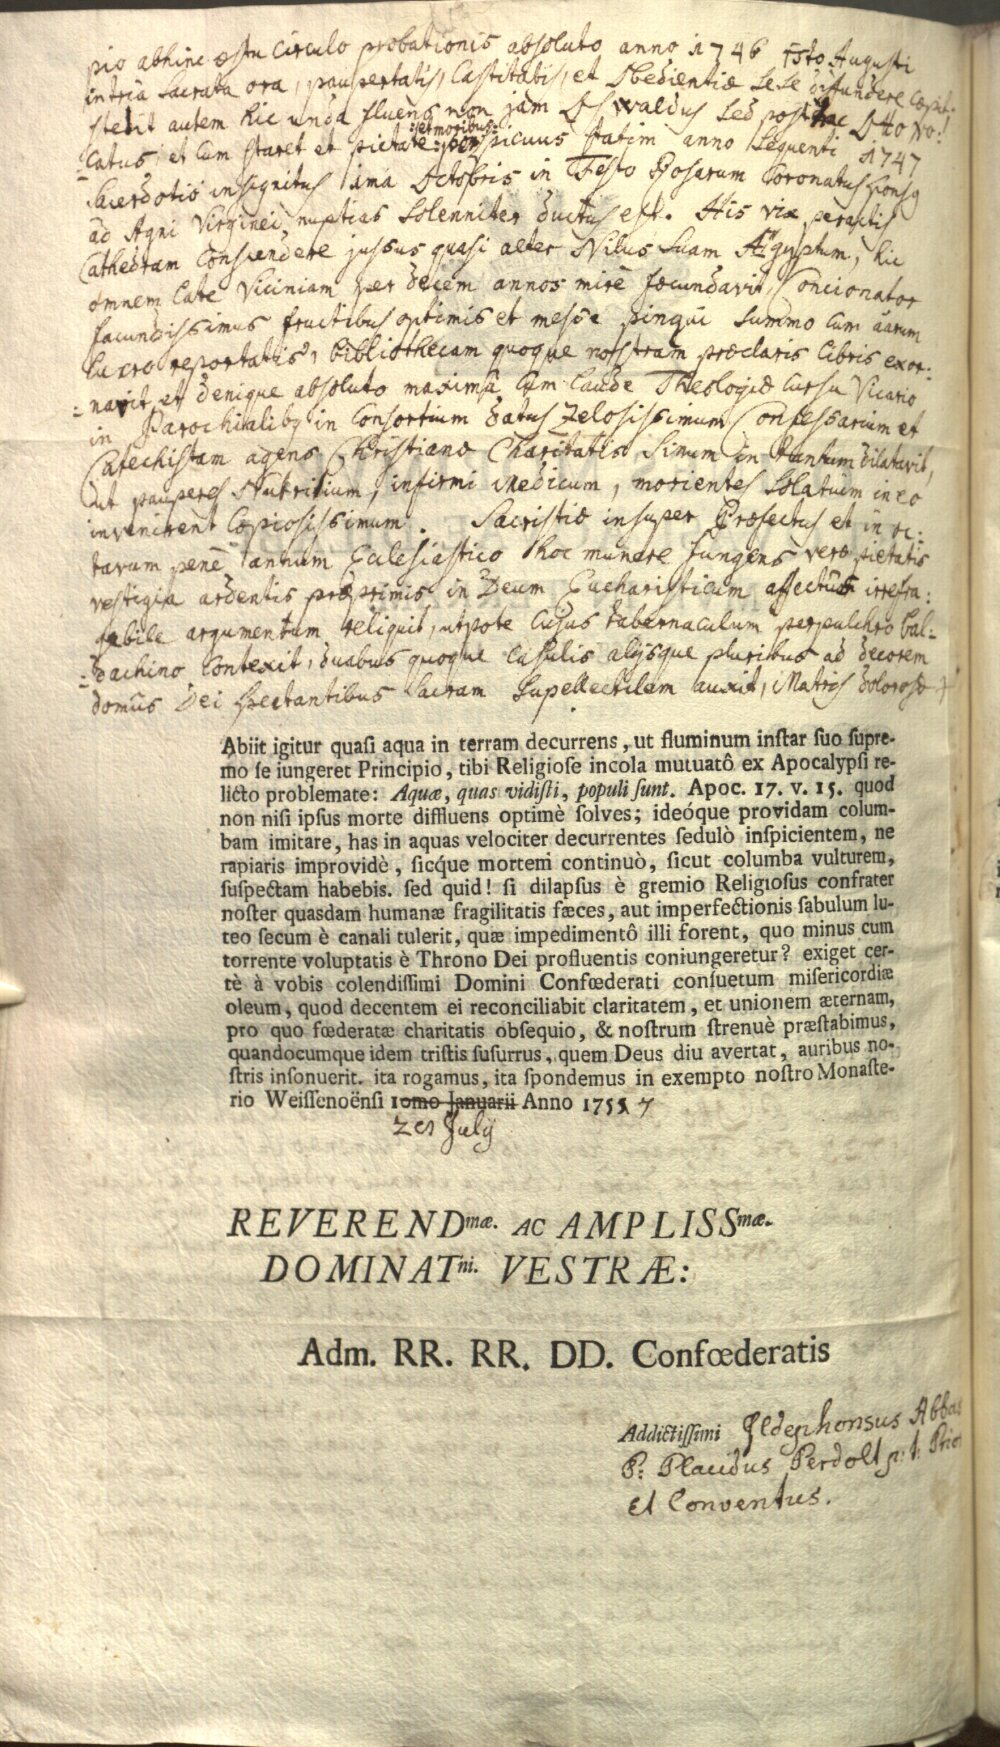 pio abhinc æstu circulo probationis absoluto anno 1746 15to Augusti
in tria Sacrata ora, paupertatis, Castitatis, et Obedientiæ sese diffundere cæpit.
stetit autem hic unda fluens non jam Oswaldus sed posthac Otto vo=
=catus, et cum staret et pietate :et moribus: conspicuus statim anno sequenti 1747
Sacerdotio insignitus 1ma Octobris in Festo Rosarum Coronatus sponsq
ad Agni Virginei nuptias solenniter ductus est. His vix peractis
Cathedram conscendere jussus quasi alter Nilus suam Ægyptum, hic
omnem late viciniam per decem annos mirè fœcundavit, Concionator
facundissimus fructibus optimis et messe pingui summo cum aarum
lucro reportatis, bibliothecam quoque nostram præclaris libris exor=
=navit, et denique absoluto maxima cum laude Theologiæ cursu Vicario
in Parochialibq in Consortium datus Zelosissimum Confessarium et
Catechistam agens Christianæ Charitatis sinum in tantum dilatavit,
ut pauperes Nutritium, infirmi Medicum, morientes solatium in eo
invenirent copiosissimum. Sacristiæ insuper Præfectus et in oc=
tavum penè annum Ecclesiastico hoc munere fungens veræ pietatis
vestigia ardentis præprimis in Deum Eucharisticum affectus irrefra=
gabile argumentum reliquit, utpote cujus tabernaculum perpulchro bal=
=dachino contexit, duabus quoque casulis alijsque pluribus ad decorem
domûs Dei spectantibus sacram supellectilem auxit, Matris dolorosæ
Abiit igitur quasi aqua in terram decurrens, ut fluminum instar suo supre-
mo se iungeret Principio, tibi Religiose incola mutuatô ex Apocalypsi re-
licto problemate: Aquæ, quas vidisti, populi sunt. Apoc. 17. v. 15. quod
non nisi ipsus morte diffluens optimè solves; ideóque providam colum-
bam imitare, has in aquas velociter decurrentes sedulò inspicientem, ne
rapiaris improvidè, sicque mortem continuò, sicut columba vulturem,
suspectam habebis. sed quid! si dilapsus è gremio Religiosus confrater
noster quasdam humanæ fragilitatis fæces, aut imperfectionis sabulum lu-
teo secum è canali tulerit, quæ impedimentô illi forent, quo minus cum
torrente voluptatis è Throno Dei profluentis coniungeretur? exiget cer-
tè à vobis colendissimi Domini Confœderati consuetum misericordiæ
oleum, quod decentem ei reconciliabit claritatem, et unionem æternam,
pro quo fœderatæ charitatis obsequio, & nostrum strenuè præstabimus,
quandocumque idem tristis susurrus, quem Deus diu avertat, auribus no-
stris insonuerit. ita rogamus, ita spondemus in exempto nostro Monaste-
rio Weissenoënsi 1omo Januarii Anno 1755 7
2en Julij
REVERENDmæ. AC AMPLISSmæ.
DOMINATni. VESTRÆ:
Adm. RR. RR. DD. Confœderatis
Addictissimi Ildephonsus Abbas
P: Placidus Perdolt p: t: Prior
et Conventus.